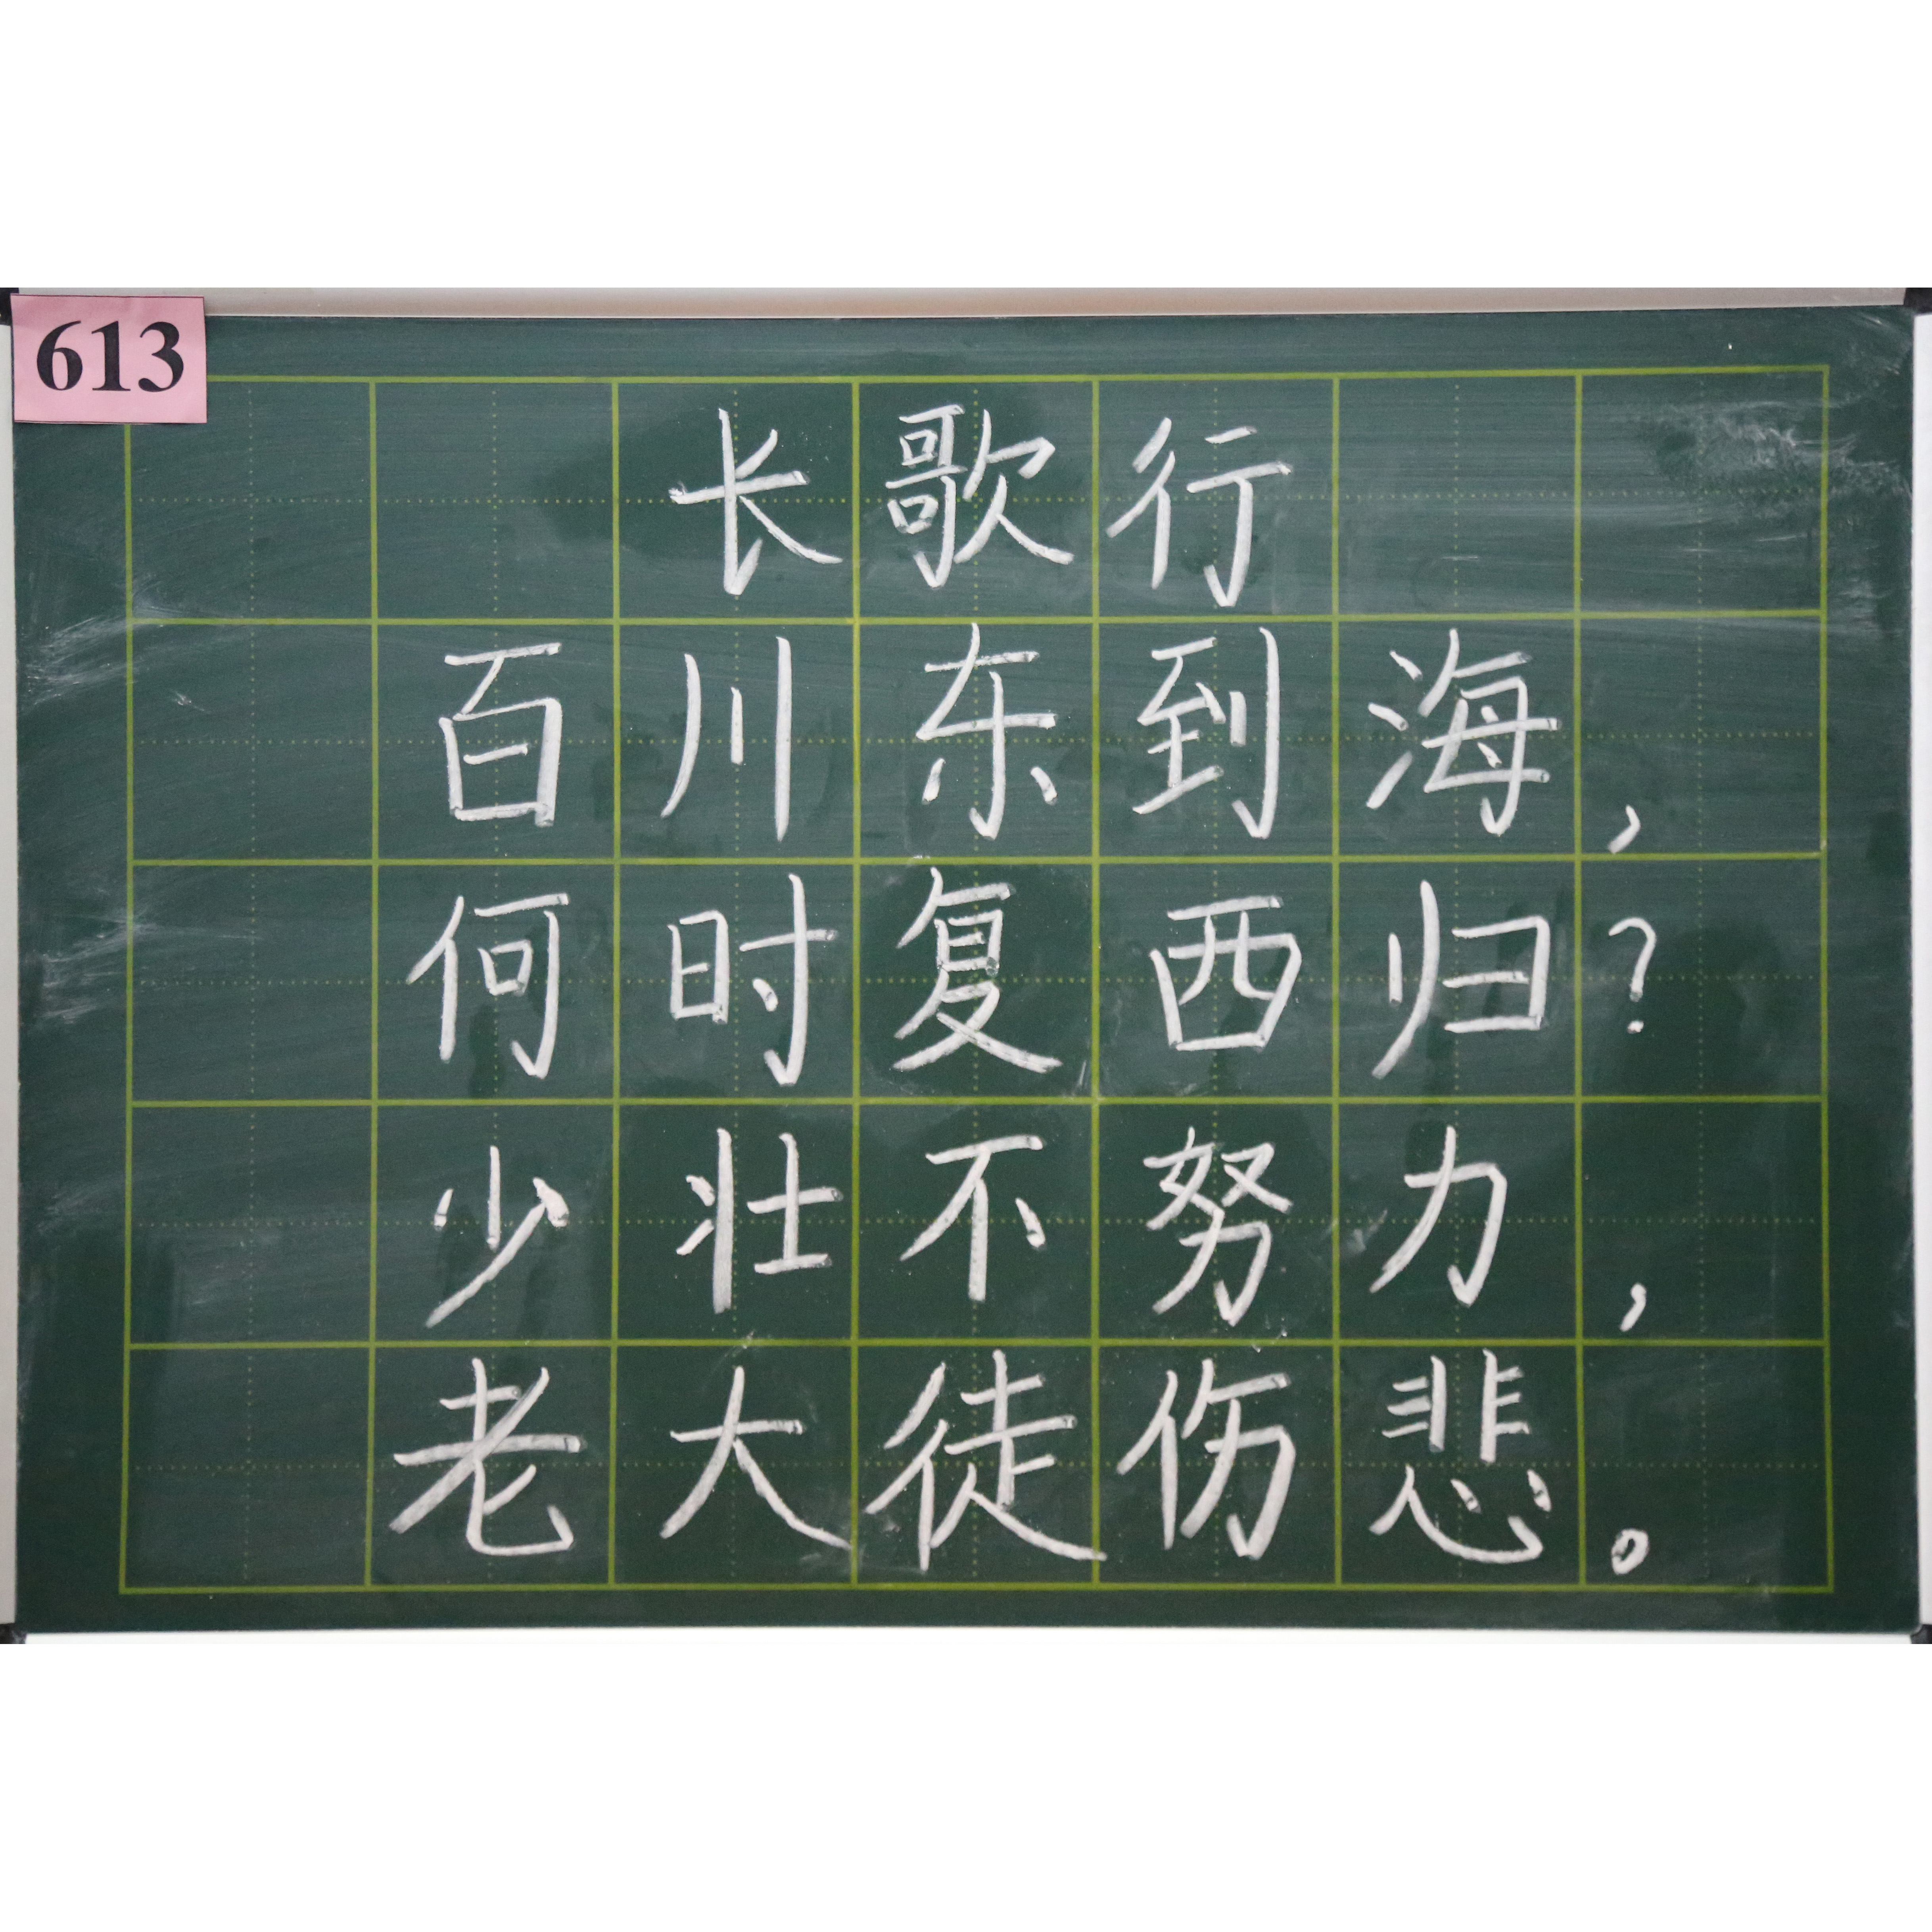 613
长歌行
百川东到海，
何时复西归？
少壮不努力，
老大徒伤悲。